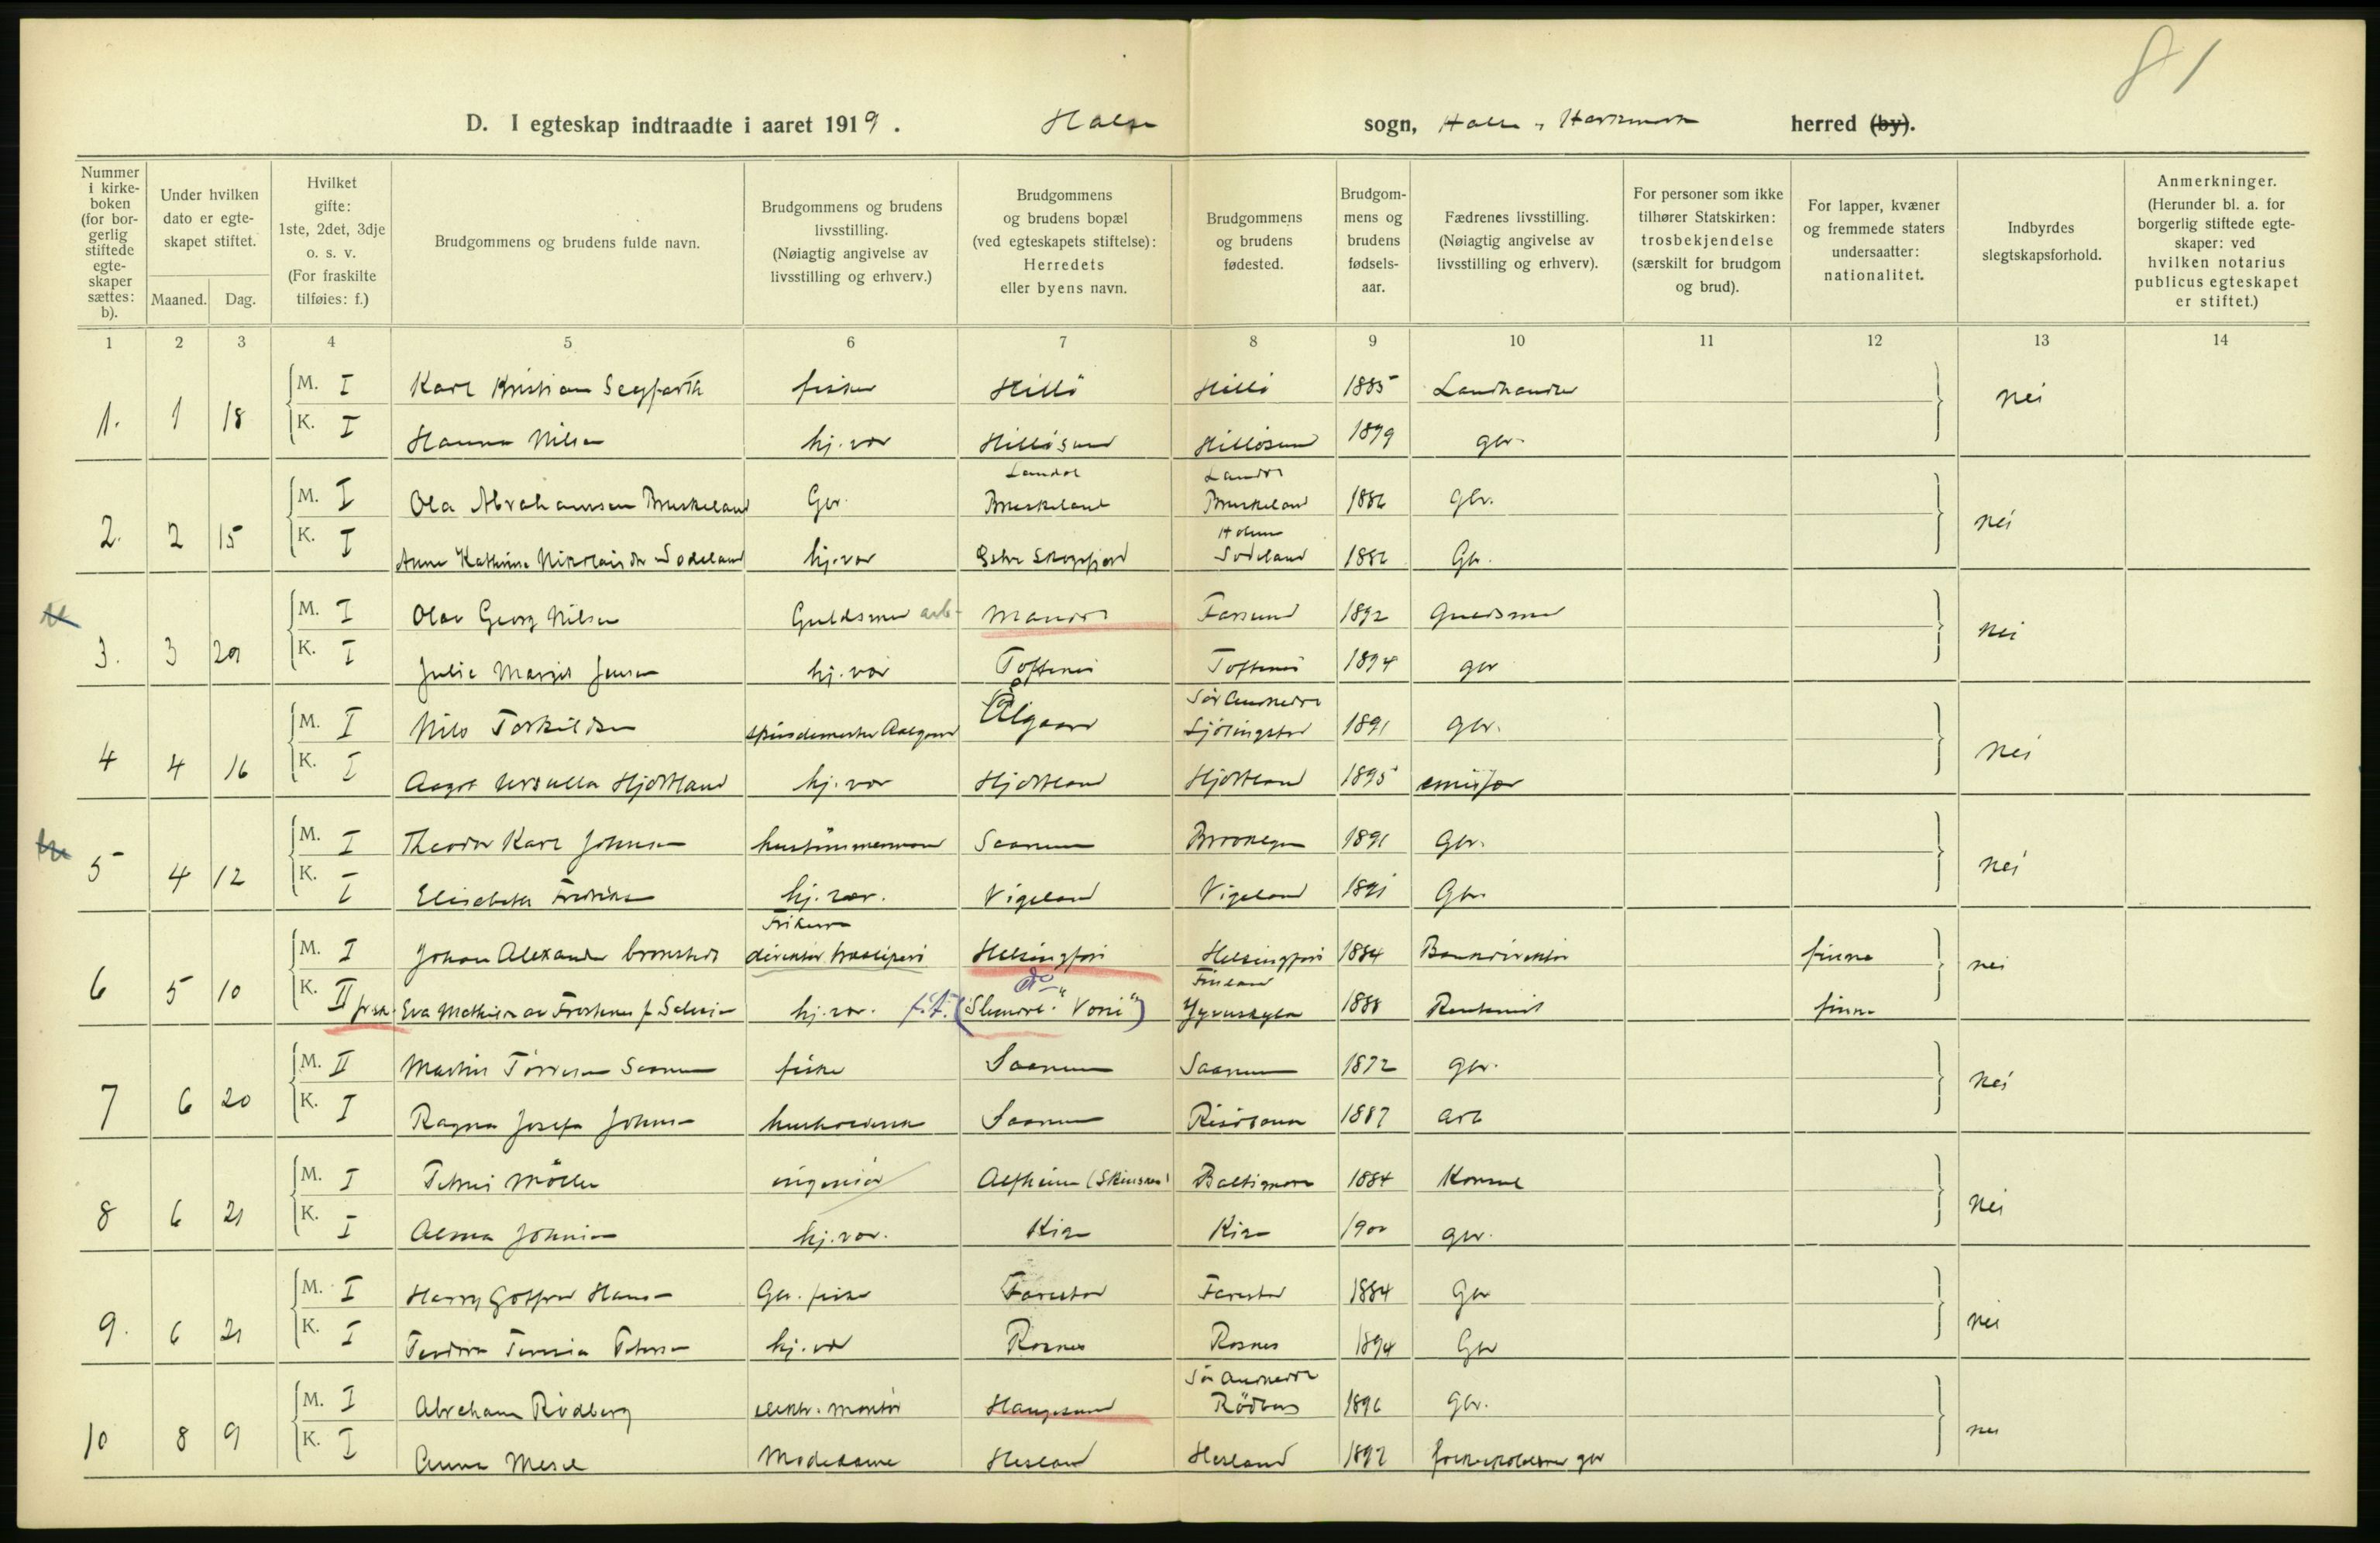 81
D. I egteskap indtraadte i aaret 1919. Halse sogn, Halse og Harkmark herred (by).
Nummer i kirkeboken (for borgerlig stiftede egteskaper sættes: b).
Under hvilken dato er egteskapet stiftet.
Maaned. Dag.
Hvilket gifte: 1ste, 2det, 3dje o. s. v. (For fraskilte tilføies: f.)
Brudgommens og brudens fulde navn.
Brudgommens og brudens livsstilling. (Nøiagtig angivelse av livsstilling og erhverv.)
Brudgommens og brudens bopæl (ved egteskapets stiftelse): Herredets eller byens navn.
Brudgommens og brudens fødested.
Brudgommens og brudens fødselsaar.
Fædrenes livsstilling. (Nøiagtig angivelse av livsstilling og erhverv).
For personer som ikke tilhører Statskirken: trosbekjendelse (særskilt for brudgom og brud).
For lapper, kvæner og fremmede staters undersaatter: nationalitet.
Indbyrdes slegtskapsforhold.
Anmerkninger. (Herunder bl. a. for borgerlig stiftede egteskaper: ved hvilken notarius publicus egteskapet er stiftet.)
1 2 3 4 5 6 7 8 9 10 11 12 13 14
1. 1 18 M. I Karl Kristian Seyffarth fisker Hillö Hillö 1885 Landhandler nei
K. I Hanna Nilsen hj. vær Hillösund Hillösund 1899 gbr.
Landal Landal
2. 2 15 M. I Ola Abrahamsen Bruskeland Gbr. Bruskeland Bruskeland 1886 gbr. nei
Holum
K. I Anna Kathrine Nikolaisdtr Sodeland hj. vær Østre Skogsfjord Sodeland 1882 Gbr.
3. 3 29 M. I Olav Georg Nilsen Guldsmed arb. Mandal Farsund 1892 Guldsmed nei
K. I Julie Margit Jensen hj. vær Toftenes Toftenes 1894 gbr
Sör Audnedal
4 4 16 M. I Nils Torkildsen spindemester Aalgaard Ålgaard Sjölingstad 1891 gbr. nei
K. I Aagot Ursulla Hjortland hj. vær Hjortland Hjortland 1895 emissær
5 4 12 M. I Theodor Karl Johnsen hustömmermand Saanum 1891 Gbr. nei
K. I Elisabeth Fredriksen hj. vær. Vigeland Vigeland 1891 Gbr.
6 5 10 M. I Johan Alexander direktör træsliperi Helsingfors Helsingfors 1884 Bankdirektör finne nei
do Finland
K. II frsk. Eva Mathilda hj. vær. f.t. ("Voni") Jyväskylä 1888 Rentenist finne
7 6 20 M. II Martin Törresen Saanum fisker Saanum Saanum 1872 gbr. nei
K. I Ragna Josefa Johnsen husholderske Saanum Risöbank 1887 arb
8 6 21 M. I Petrus Möller ingeniör Alfheim (Skinsnes) Baltimore 1884 Konsul nei
K. I Alma Johnsen hj. vær. Kige Kige 1900 gbr.
9. 6 21 M. I Harry Gotfred Hansen Gbr. fisker Farestad Farestad 1884 Gbr nei
K. I Teodora Petersen hj. vær Rosnes Rosnes 1894 Gbr
Sör Audnedal
10 8 9 M. I Abraham Rödberg elektr. montör Haugesund Rödberg 1896 gbr. nei
K. I Anna Mesel Modedame Hesland Hesland 1892 gbr